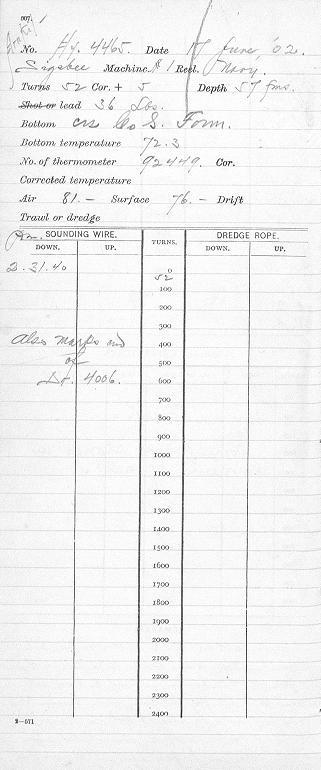 007.
No. Hy. 4465. Date 17 June '02.
Sigsbee Machine. # 1 Reel. Navy.
Turns 52 Cor. + 5 Depth 57 fms.
Shot or lead 36 Lbs.
Bottom crs Co S. Foram.
Bottom temperature 72.3
No. of thermometer 92449. Cor.
Corrected temperature
Air 81.- Surface 76.- Drift
Trawl or dredge
SOUNDING WIRE. TURNS. DREDGE ROPE.
DOWN. UP. DOWN. UP.
2.31.40 0
52
100
200
300
Also marks end 400
of 500
Dr. 4006. 600
700
800
900
1000
1100
1200
1300
1400
1500
1600
1700
1800
1900
2000
2100
2200
2300
2400
2—571